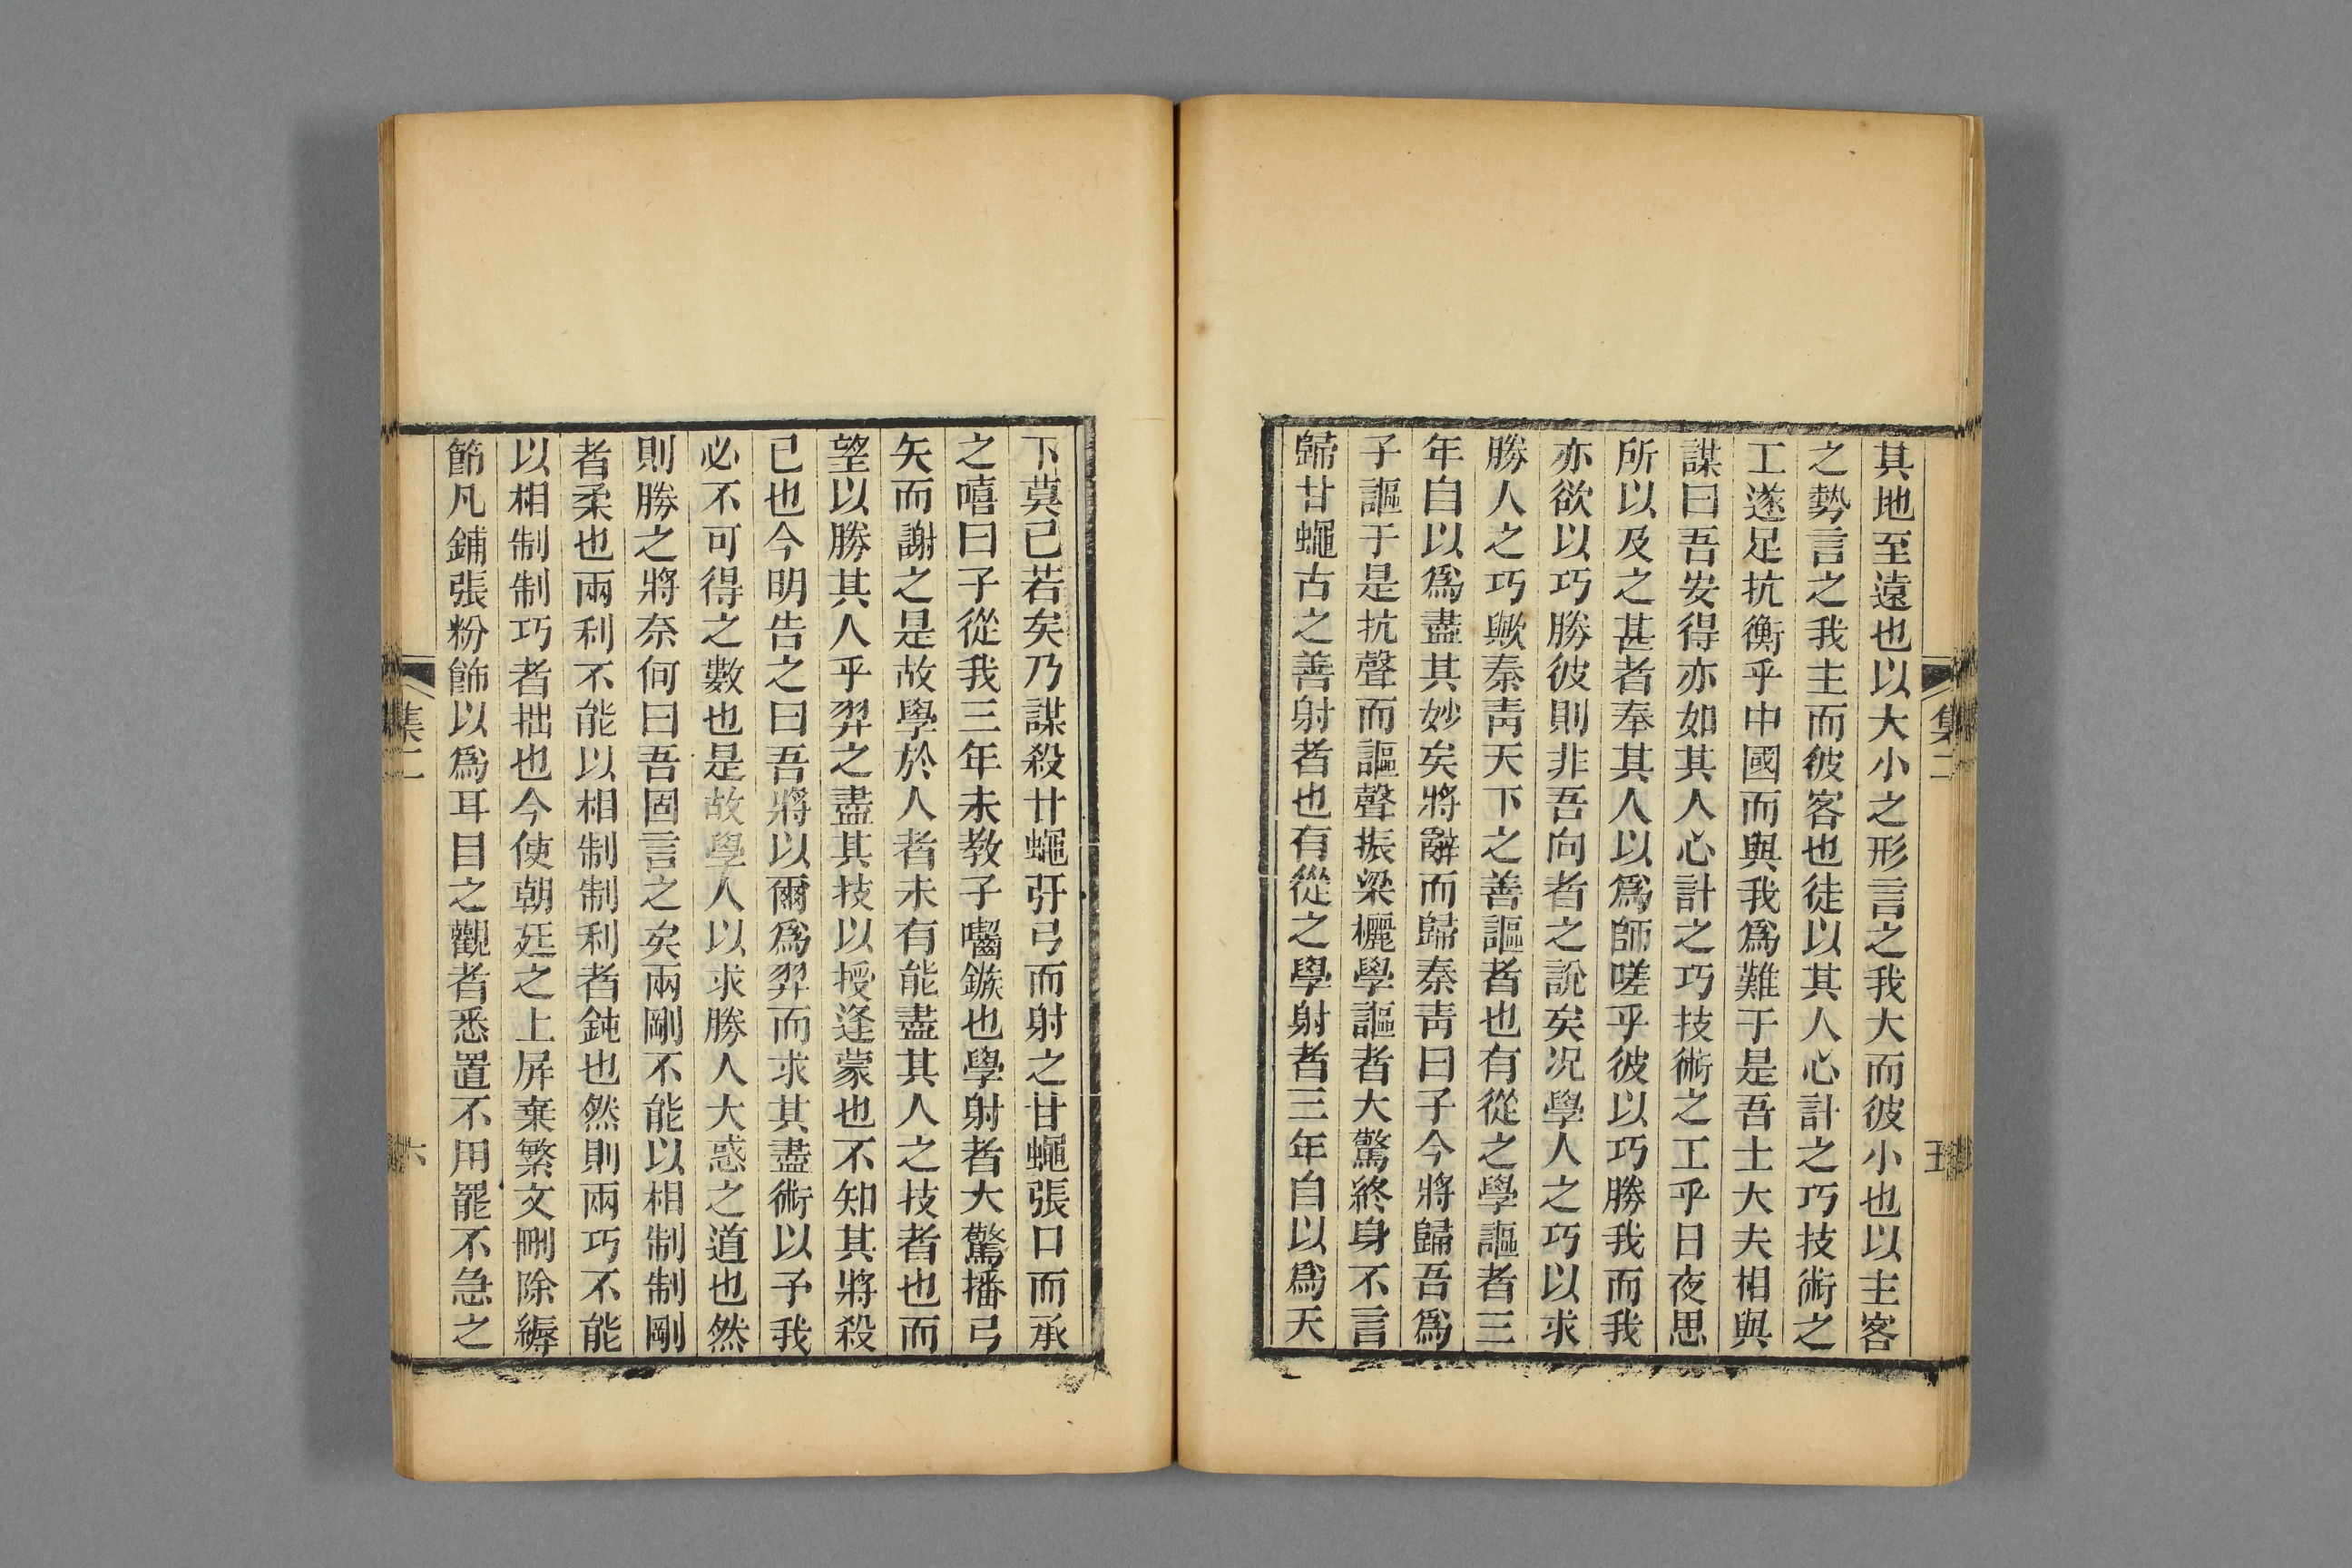 其地至遠也以大小之形言之我大而彼小也以主客
之勢言之我主而彼客也徒以其人心計之巧技術之
工遂足抗衡乎中國而與我爲難于是吾士大夫相與
謀曰吾安得亦如其人心計之巧技術之工乎日夜思
所以及之甚者奉其人以爲師嗟乎彼以巧勝我而我
亦欲以巧勝彼則非吾向者之說矣况學人之巧以求
勝人之巧歟秦靑天下之善謳者也有從之學謳者三
年自以爲盡其妙矣將辭而歸秦靑曰子今將歸吾爲
子謳于是抗聲而謳聲振梁欐學謳者大驚終身不言
歸甘蠅古之善射者也有從之學射者三年自以爲天
集二
五
下莫己若矣乃謀殺甘蠅彀弓而射之甘蠅張口而承
之嘻曰子從我三年未敎子囓鏃也學射者大驚播弓
矢而謝之是故學於人者未有能盡其人之技者也而
望以勝其人乎羿之盡其技以授逢蒙也不知其將殺
己也今明告之曰吾將以爾爲羿而求其盡術以予我
必不可得之數也是故學人以求勝人大惑之道也然
則勝之將奈何曰吾固言之矣兩剛不能以相制制剛
者柔也兩利不能以相制制利者鈍也然則兩巧不能
以相制制巧者拙也今使朝廷之上屏棄繁文刪除縟
節凡鋪張粉飾以爲耳目之觀者悉置不用罷不急之
集二
六